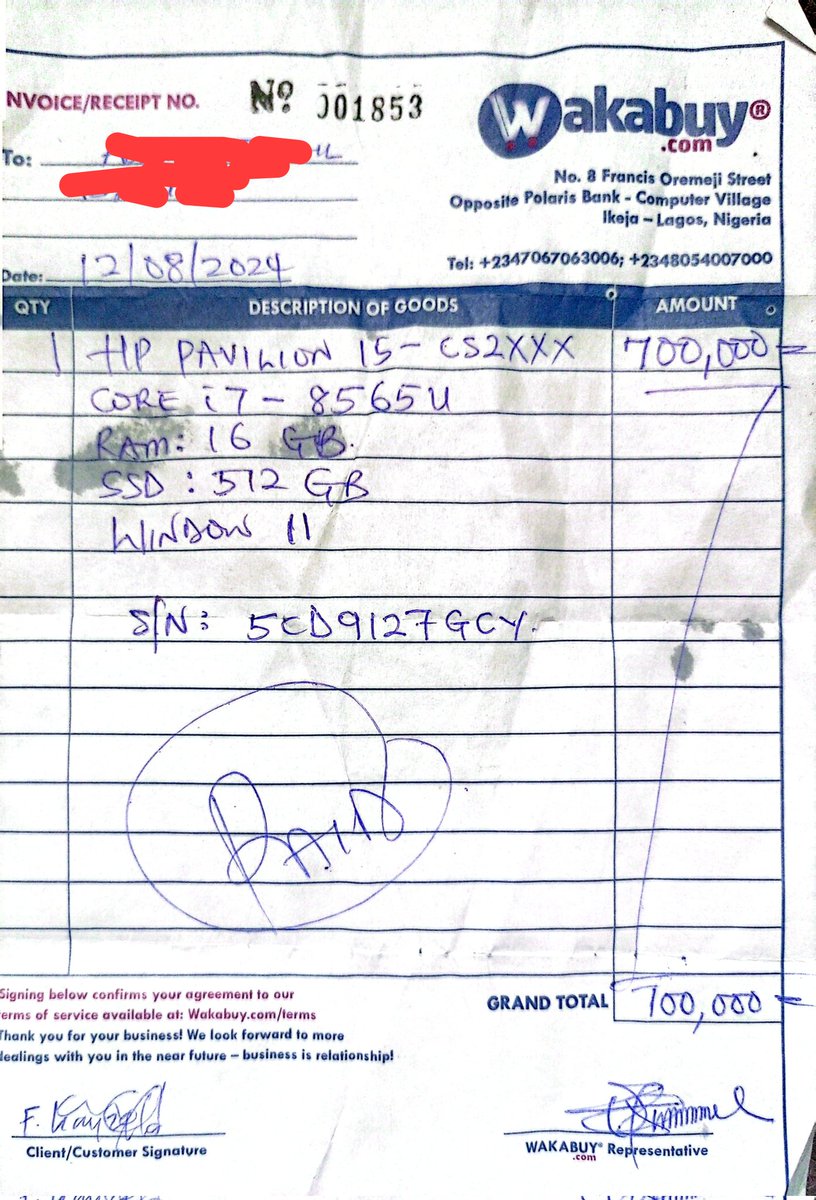 NVOICE/RECEIPT NO. Nº 001853
Wakabuy®
.com
To:
No. 8 Francis Oremeji Street
Opposite Polaris Bank - Computer Village
Ikeja – Lagos, Nigeria
Date: 12/08/2024
Tel: +2347067063006; +2348054007000
QTY DESCRIPTION OF GOODS AMOUNT
1 HP PAVILION 15- CS2XXX 700,000=
CORE i7 - 8565U
RAM: 16 GB.
SSD: 512 GB
WINDOW 11
S/N: 5CD9127GCY.
PAID
Signing below confirms your agreement to our
erms of service available at: Wakabuy.com/terms
GRAND TOTAL 700,000=
Thank you for your business! We look forward to more
dealings with you in the near future – business is relationship!
F.
Client/Customer Signature
WAKABUY® Representative
.com